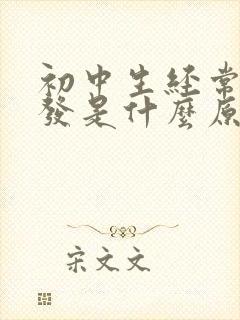 初中生經常
發是什麼原
宋文文